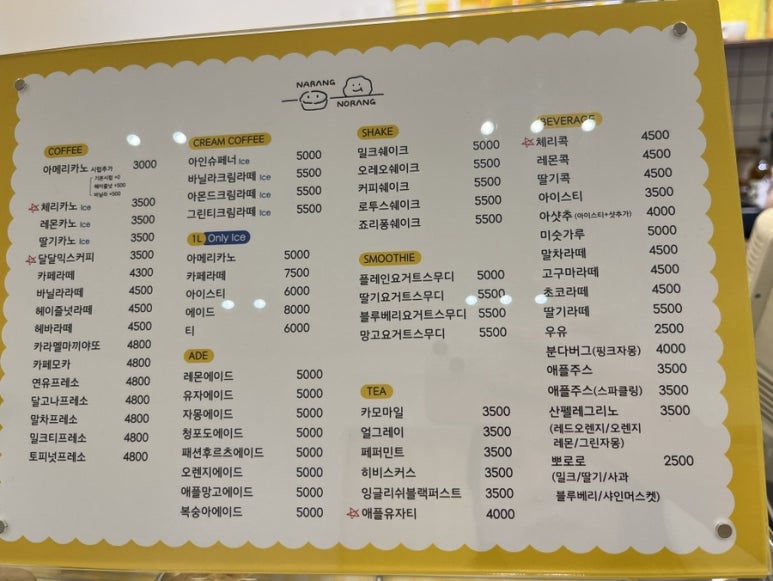 NARANG
NORANG
COFFEE
아메리카노 시럽추가 3000
기본시럽 +0
헤이즐넛 +500
바닐라 +500
체리카노 Ice 3500
레몬카노 Ice 3500
딸기카노 Ice 3500
달달믹스커피 3500
카페라떼 4300
바닐라라떼 4500
헤이즐넛라떼 4500
헤바라떼 4500
카라멜마끼야또 4800
카페모카 4800
연유프레소 4800
달고나프레소 4800
말차프레소 4800
밀크티프레소 4800
토피넛프레소 4800
CREAM COFFEE
아인슈페너 Ice 5000
바닐라크림라떼 Ice 5500
아몬드크림라떼 Ice 5500
그린티크림라떼 Ice 5500
1L Only Ice
아메리카노 5000
카페라떼 7500
아이스티 6000
에이드 8000
티 6000
ADE
레몬에이드 5000
유자에이드 5000
자몽에이드 5000
청포도에이드 5000
패션후르츠에이드 5000
오렌지에이드 5000
애플망고에이드 5000
복숭아에이드 5000
SHAKE
밀크쉐이크 5000
오레오쉐이크 5500
커피쉐이크 5500
로투스쉐이크 5500
죠리퐁쉐이크 5500
SMOOTHIE
플레인요거트스무디 5000
딸기요거트스무디 5500
블루베리요거트스무디 5500
망고요거트스무디 5500
TEA
카모마일 3500
얼그레이 3500
페퍼민트 3500
히비스커스 3500
잉글리쉬블랙퍼스트 3500
애플유자티 4000
BEVERAGE
체리콕 4500
레몬콕 4500
딸기콕 4500
아이스티 3500
아샷추 (아이스티+샷추가) 4000
미숫가루 5000
말차라떼 4500
고구마라떼 4500
초코라떼 4500
딸기라떼 5500
우유 2500
분다버그(핑크자몽) 4000
애플주스 3500
애플주스(스파클링) 3500
산펠레그리노 3500
(레드오렌지/오렌지
레몬/그린자몽)
뽀로로 2500
(밀크/딸기/사과
블루베리/샤인머스켓)